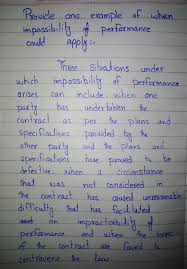 Provide one example of when
impossibility of performance
could apply:-
Three Situations under
which impossibility of performance
arises can include when one
party has undertaken the
contract as per the plans and
specifications provided by the
other party and the plans and
specifications have proved to be
defective, when a circumstance
that was not considered in
the contract has caused unreasonable
difficulty that has facilitated
and an impracticability of
performance and when the terms
of the contract are found to
contravene the law